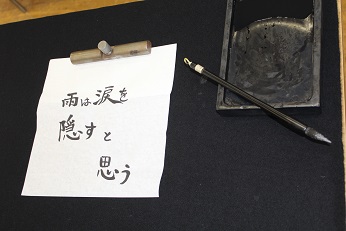 雨は涙を
隠すと
思う